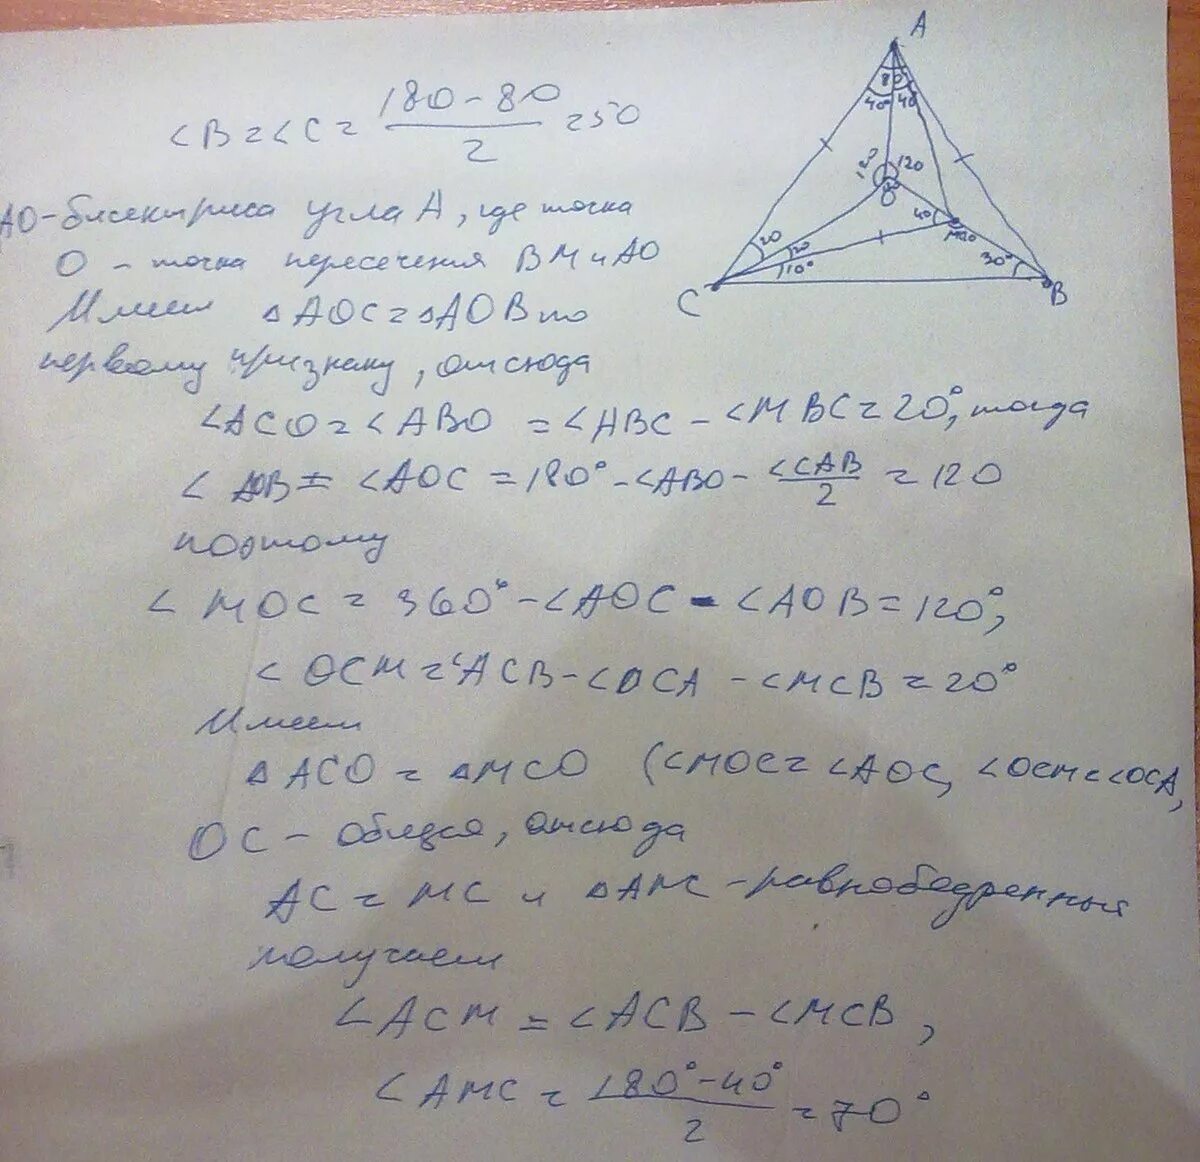 <B = <C = (180 - 80)/2 = 50
АО - биссектриса угла А, где точка
О - точка пересечения ВМ и АО
Имеем △AOC = △AOB по
первому признаку, отсюда
<ACO = <ABO = <ABC - <MBC = 20°, тогда
<AOB = <AOC = 180° - <ABO - <CAB/2 = 120
поэтому
<MOC = 360° - <AOC - <AOB = 120°,
<OCM = <ACB - <OCA - <MCB = 20°
Имеем
△ACO = △MCO (<MOC = <AOC, <OCM = <OCA,
OC - общая, отсюда
AC = MC и △AMC - равнобедренный
получаем
<ACM = <ACB - <MCB,
<AMC = (180° - 40°)/2 = 70°
A
80
40° 40
120 120
O
40
20 20
10°
30°
C
B